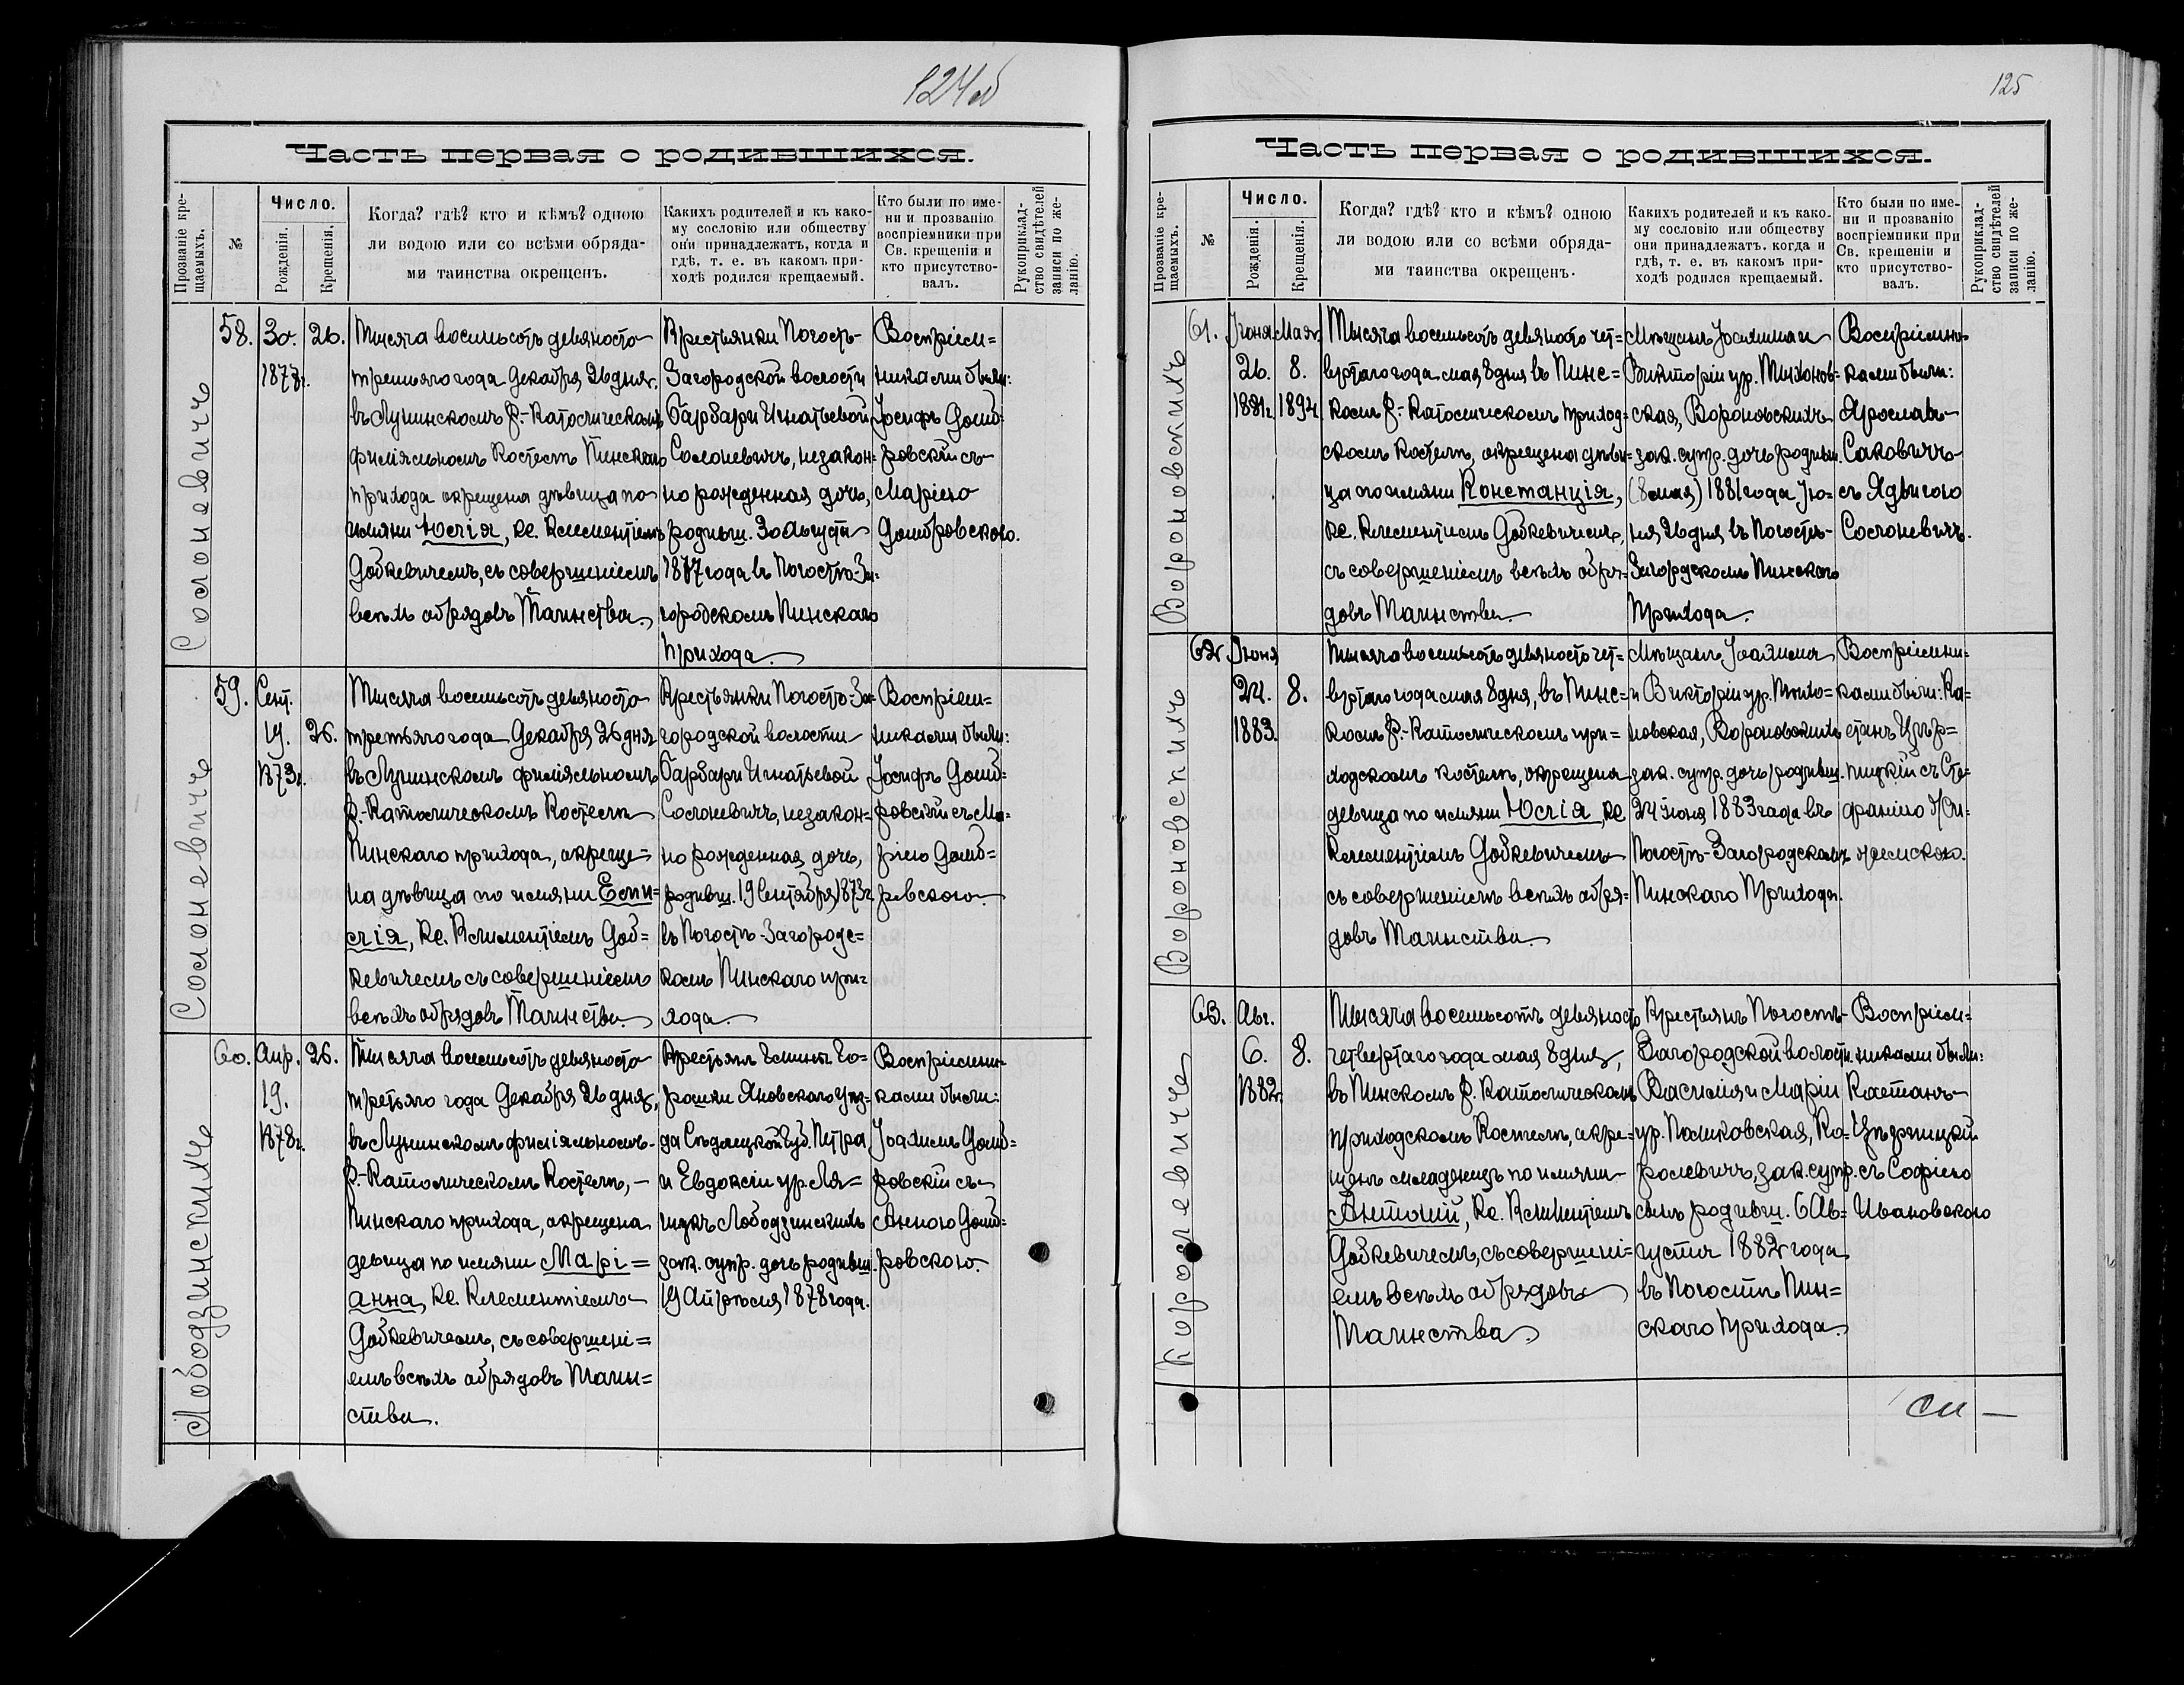 124об
Часть первая о родившихся.
Прозваніе кре-
щаемыхъ.
№
Число.
Рожденія.
Крещенія.
Когда? гдѣ? кто и кѣмъ? одною
ли водою или со всѣми обряда-
ми таинства окрещенъ.
Какихъ родителей и къ како-
му сословію или обществу
они принадлежатъ, когда и
гдѣ, т. е. въ какомъ при-
ходѣ родился крещаемый.
Кто были по име-
ни и прозванію
воспріемники при
Св. крещеніи и
кто присутство-
валъ.
Рукоприклад-
ство свидѣтелей
записи по же-
ланію.
Солоневичъ
58.
30.
1877г.
26.
Тысяча восемьсотъ девяносто
третьяго года Декабря 26 дня
въ Лунинскомъ Р.-Католическомъ
филіяльномъ Костелѣ Пинскаго
прихода окрещена дѣвица по
имяни Юлія, Кс. Клементіемъ
Додкевичемъ, съ совершеніемъ
всѣхъ обрядовъ Таинства.
Крестьянки Погостъ-
Загородской волости
Барбары Игнатьевой
Солоневичъ, незакон=
но рожденная дочь,
родивш. 30 Августа
1877 года въ Погостѣ-За=
городскомъ Пинскаго
Прихода.
Воспріем=
никами были:
Іосифъ Домб=
ровскій съ
Маріею
Домбровскою.
Солоневичъ
59.
Сент.
19.
1873г.
26.
Тысяча восемьсотъ девяносто
третьяго года Декабря 26 дня
въ Лунинскомъ филіяльномъ
Р.-Католическомъ Костелѣ
Пинскаго прихода, окреще=
на дѣвица по имяни Еми=
лія, Кс. Клементіемъ Дод=
кевичемъ съ совершеніемъ
всѣхъ обрядовъ Таинства.
Крестьянки Погостъ-За=
городской волости
Барбары Игнатьевой
Солоневичъ, незакон=
но рожденная дочь,
родивш. 19 Сентября 1873г.
въ Погостѣ-Загородс=
комъ Пинскаго при=
хода.
Воспріем=
никами были:
Іосифъ Домб=
ровскій съ Ма=
ріею Домб=
ровскою.
Лободзинскихъ
60.
Апр.
19.
1878г.
26.
Тысяча восемьсотъ девяносто
третьяго года Декабря 26 дня,
въ Лунинскомъ филіяльномъ
Р.-Католическомъ Костелѣ,-
Пинскаго прихода, окрещена
девица по имяни Марі=
анна, Кс. Клементіемъ
Додкевичемъ, съ совершені=
емъ всѣхъ обрядовъ Таин=
ства.
Крестьянъ Гмины Го=
Яновскаго Уѣз=
да Сѣдлецкой Губ. Петра
и Евдокіи ур. Ля=
Лободзинскихъ
зак. супр. дочь родивш.
19 Апрѣля 1878 года.
Воспріемни=
ками были:
Іоахимъ Домб=
ровскій съ
Анною Домб=
ровскою.
125
Часть первая о родившихся.
Прозваніе кре-
щаемыхъ.
№
Число.
Рожденія.
Крещенія.
Когда? гдѣ? кто и кѣмъ? одною
ли водою или со всѣми обряда-
ми таинства окрещенъ.
Какихъ родителей и къ како-
му сословію или обществу
они принадлежатъ. когда и
гдѣ, т. е. въ какомъ при-
ходѣ родился крещаемый.
Кто были по име-
ни и прозванію
воспріемники при
Св. крещеніи и
кто присутство-
валъ.
Рукоприклад-
ство свидѣтелей
записи по же-
ланію.
Вороновскихъ
61.
Іюня
26.
1881г.
Мая
8.
1894
Тысяча восемьсотъ девяносто чет=
вертаго года мая 8 дня въ Пинс=
комъ Р.-Католическомъ приход=
скомъ костелѣ, окрещена дѣви=
ца по имяни Констанція,
Кс. Клементіемъ Додкевичемъ,
съ совершеніемъ всѣхъ обря=
довъ Таинства.
Мѣщанъ Іоахима и
Викторіи ур. Тихонов=
ская, Вороновскихъ
зак. супр. дочь родивш.
(8 мая) 1881 года Ію=
ня 26 дня въ Погостѣ-
Загородскомъ Пинскаго
Прихода.
Воспріемни=
ками были:
Ярославъ
Саковичъ
съ Ядвигою
Солоневичъ.
Вороновскихъ
62.
Іюня
24.
1883.
8.
Тысяча восемьсотъ девяносто чет=
вертаго года мая 8 дня, въ Пинс=
комъ Р.-Католическомъ при=
ходскомъ костелѣ, окрещена
девица по имяни Юлія, Кс
Клементіемъ Додкевичемъ
съ совершеніемъ всѣхъ обря=
довъ Таинства.
Мѣщанъ Іоахима
и Викторіи ур. Тихо=
новская, Вороновскихъ
зак. супр. дочь родивш.
24 іюня 1883 года въ
Погостѣ-Загородскомъ
Пинскаго Прихода.
Воспріемни=
ками были: Ка=
етанъ Цѣр=
пицкій съ Сте=
фаніею
Королевичъ
63.
Авг.
6.
1882г.
8.
Тысяча восемьсотъ девяносто
четвертаго года мая 8 дня,
въ Пинскомъ Р. Католическомъ
приходскомъ Костелѣ, окре=
щенъ младенецъ по имяни
Антоній, Кс. Клементіемъ
Додкевичемъ, съ совершені=
емъ всѣхъ обрядовъ
Таинства.
Крестьянъ Погостъ-
Загородской волости
Василія и Маріи
ур. Полховская, Ко=
ролевичъ, зак. супр.
сынъ родивш. 6 Ав=
густа 1882 года
въ Погостѣ Пин=
скаго Прихода.
Воспріем=
никами были:
Каетанъ
Цѣрпицкій
съ Софіею
Ивановскою